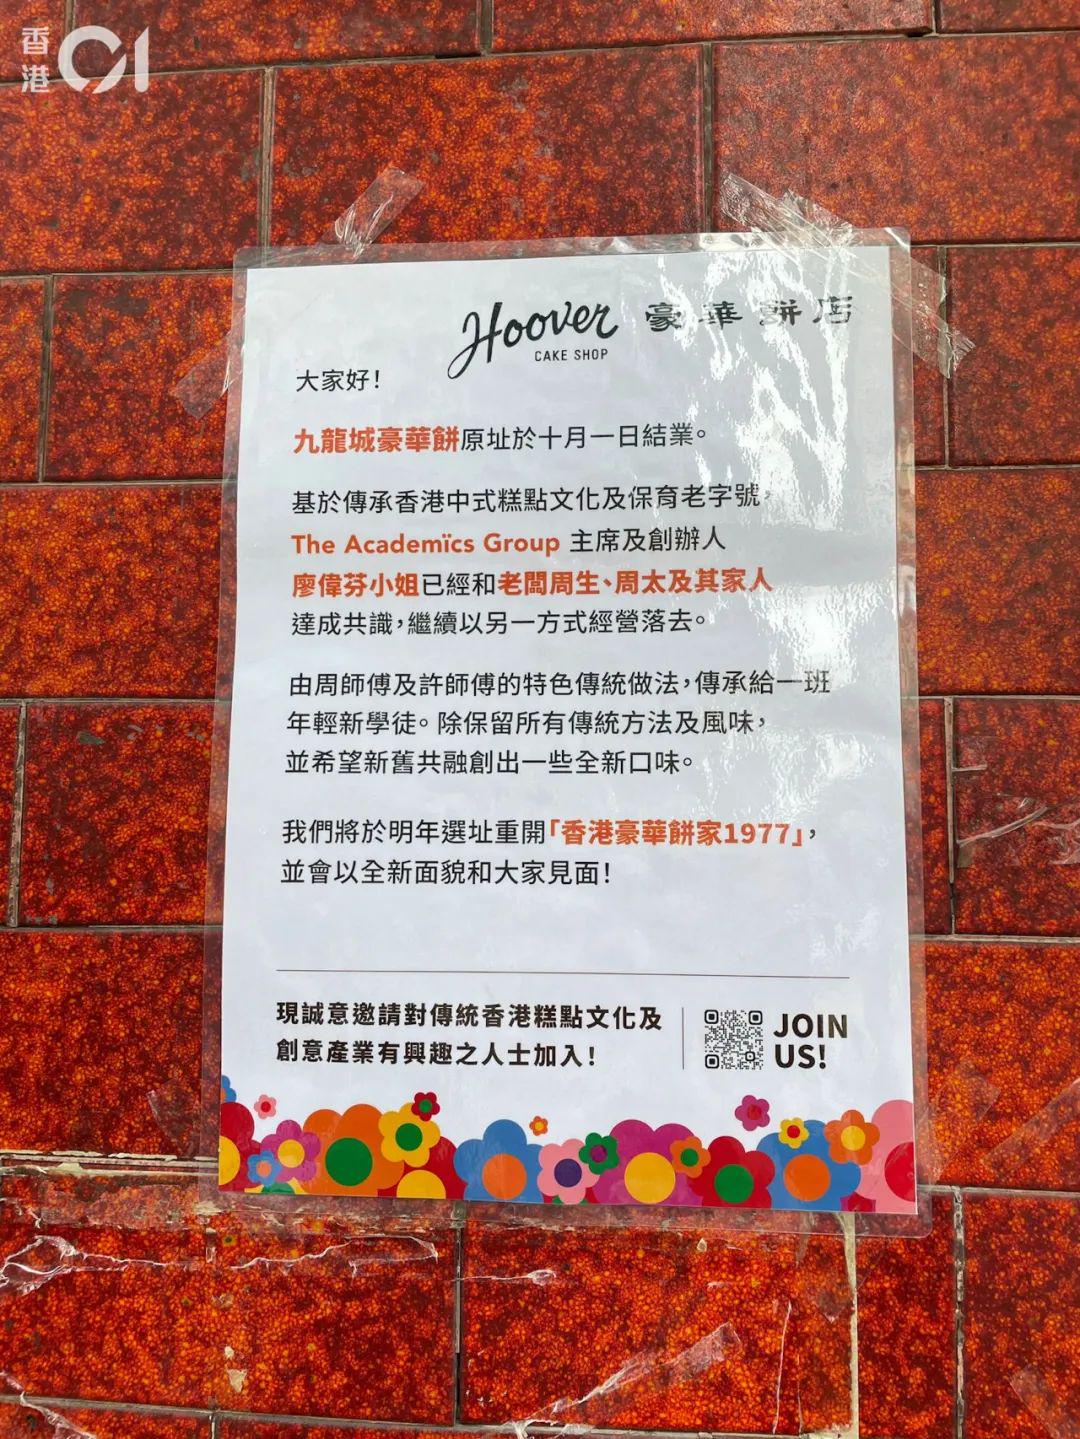 香港01
Hoover 豪華餅店
CAKE SHOP
大家好！
九龍城豪華餅原址於十月一日結業。
基於傳承香港中式糕點文化及保育老字號，
The Academïcs Group 主席及創辦人
廖偉芬小姐已經和老闆周生、周太及其家人
達成共識，繼續以另一方式經營落去。
由周師傅及許師傅的特色傳統做法，傳承給一班
年輕新學徒。除保留所有傳統方法及風味，
並希望新舊共融創出一些全新口味。
我們將於明年選址重開「香港豪華餅家1977」，
並會以全新面貌和大家見面！
現誠意邀請對傳統香港糕點文化及
創意產業有興趣之人士加入！
JOIN
US!